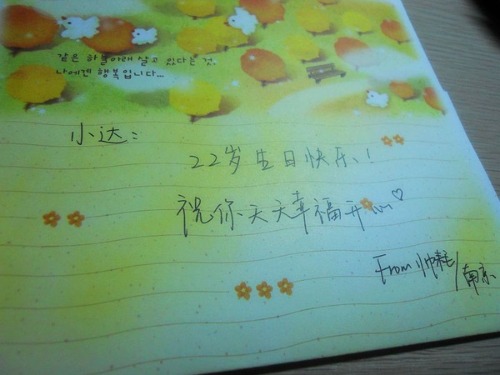 같은 하늘아래 살고 있다는 것,
나에겐 행복입니다...
小达：
22岁生日快乐！
祝你天天幸福开心♡
From 帅耗/南京